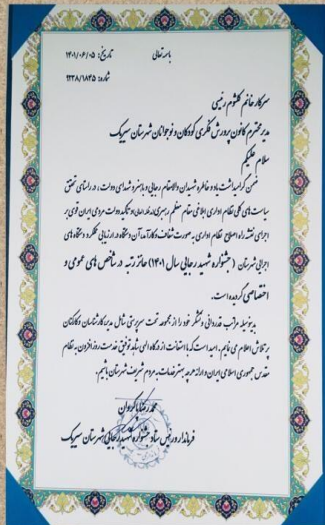 باسمه تعالی
تاریخ: ۱۴۰۱/۰۶/۰۵
شماره: ۱۲۳۸/۱۸۴۵
سرکار خانم کلثوم رئیسی
مدیر محترم کانون پرورش فکری کودکان و نوجوانان شهرستان سیریک
سلام علیکم
ضمن گرامیداشت یاد و خاطره شهیدان والامقام رجایی و باهنر و شهدای دولت، در راستای تحقق
سیاست های کلی نظام اداری ابلاغی مقام معظم رهبری (مدظله العالی) و تاکید دولت مردمی ایران قوی بر
اجرای نقشه راه اصلاح نظام اداری به صورت شفاف و کارآمد، آن دستگاه در ارزیابی عملکرد دستگاه های
اجرایی شهرستان (جشنواره شهید رجایی سال ۱۴۰۱) حائز رتبه در شاخص های عمومی و
اختصاصی گردیده است.
بدینوسیله مراتب قدردانی و تشکر خود را از مجموعه تحت سرپرستی شامل مدیر، کارشناسان و کارکنان
پرتلاش اعلام می نمایم. امید است که با استعانت از درگاه الهی شاهد توفیق خدمت روزافزون به نظام
مقدس جمهوری اسلامی ایران و ارائه هرچه بهتر خدمات به مردم شریف شهرستان باشیم.
محمد رادمهر
فرماندار و رئیس ستاد جشنواره شهید رجایی شهرستان سیریک